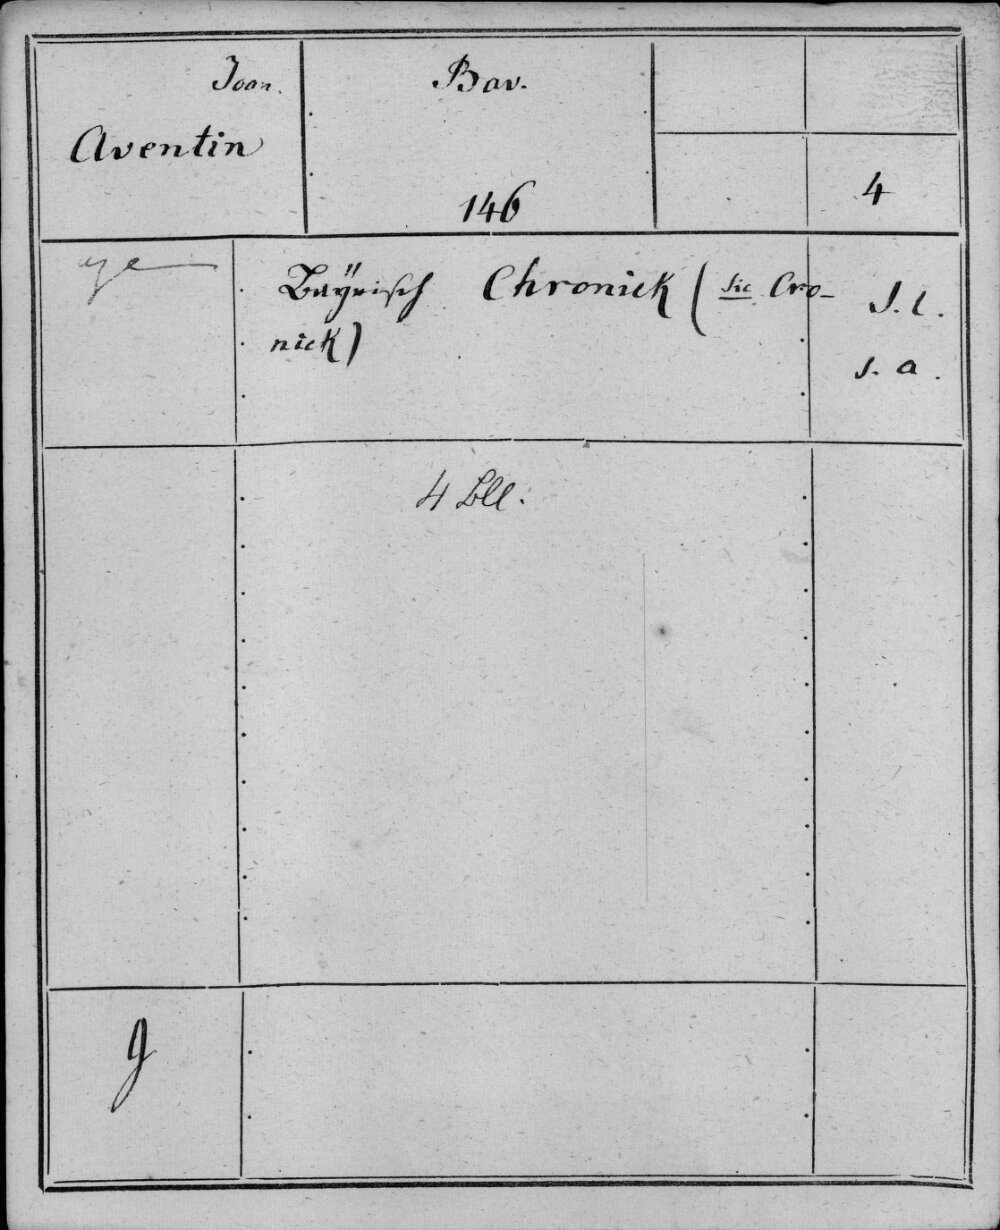 Joan.
Aventin
Bav.
146
4
Baÿrisch Chronick (sic Cro-
nick)
s. l.
s. a.
4 Bll.
g